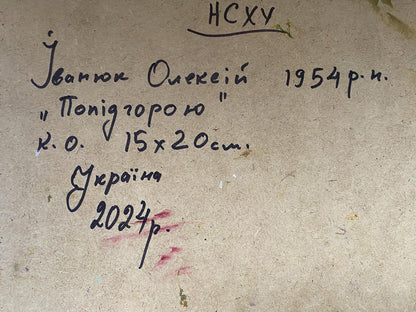 НСХУ
Іванюк Олексій 1954 р.н.
„Попідгорою"
к.о. 15х20см.
Україна
2024р.